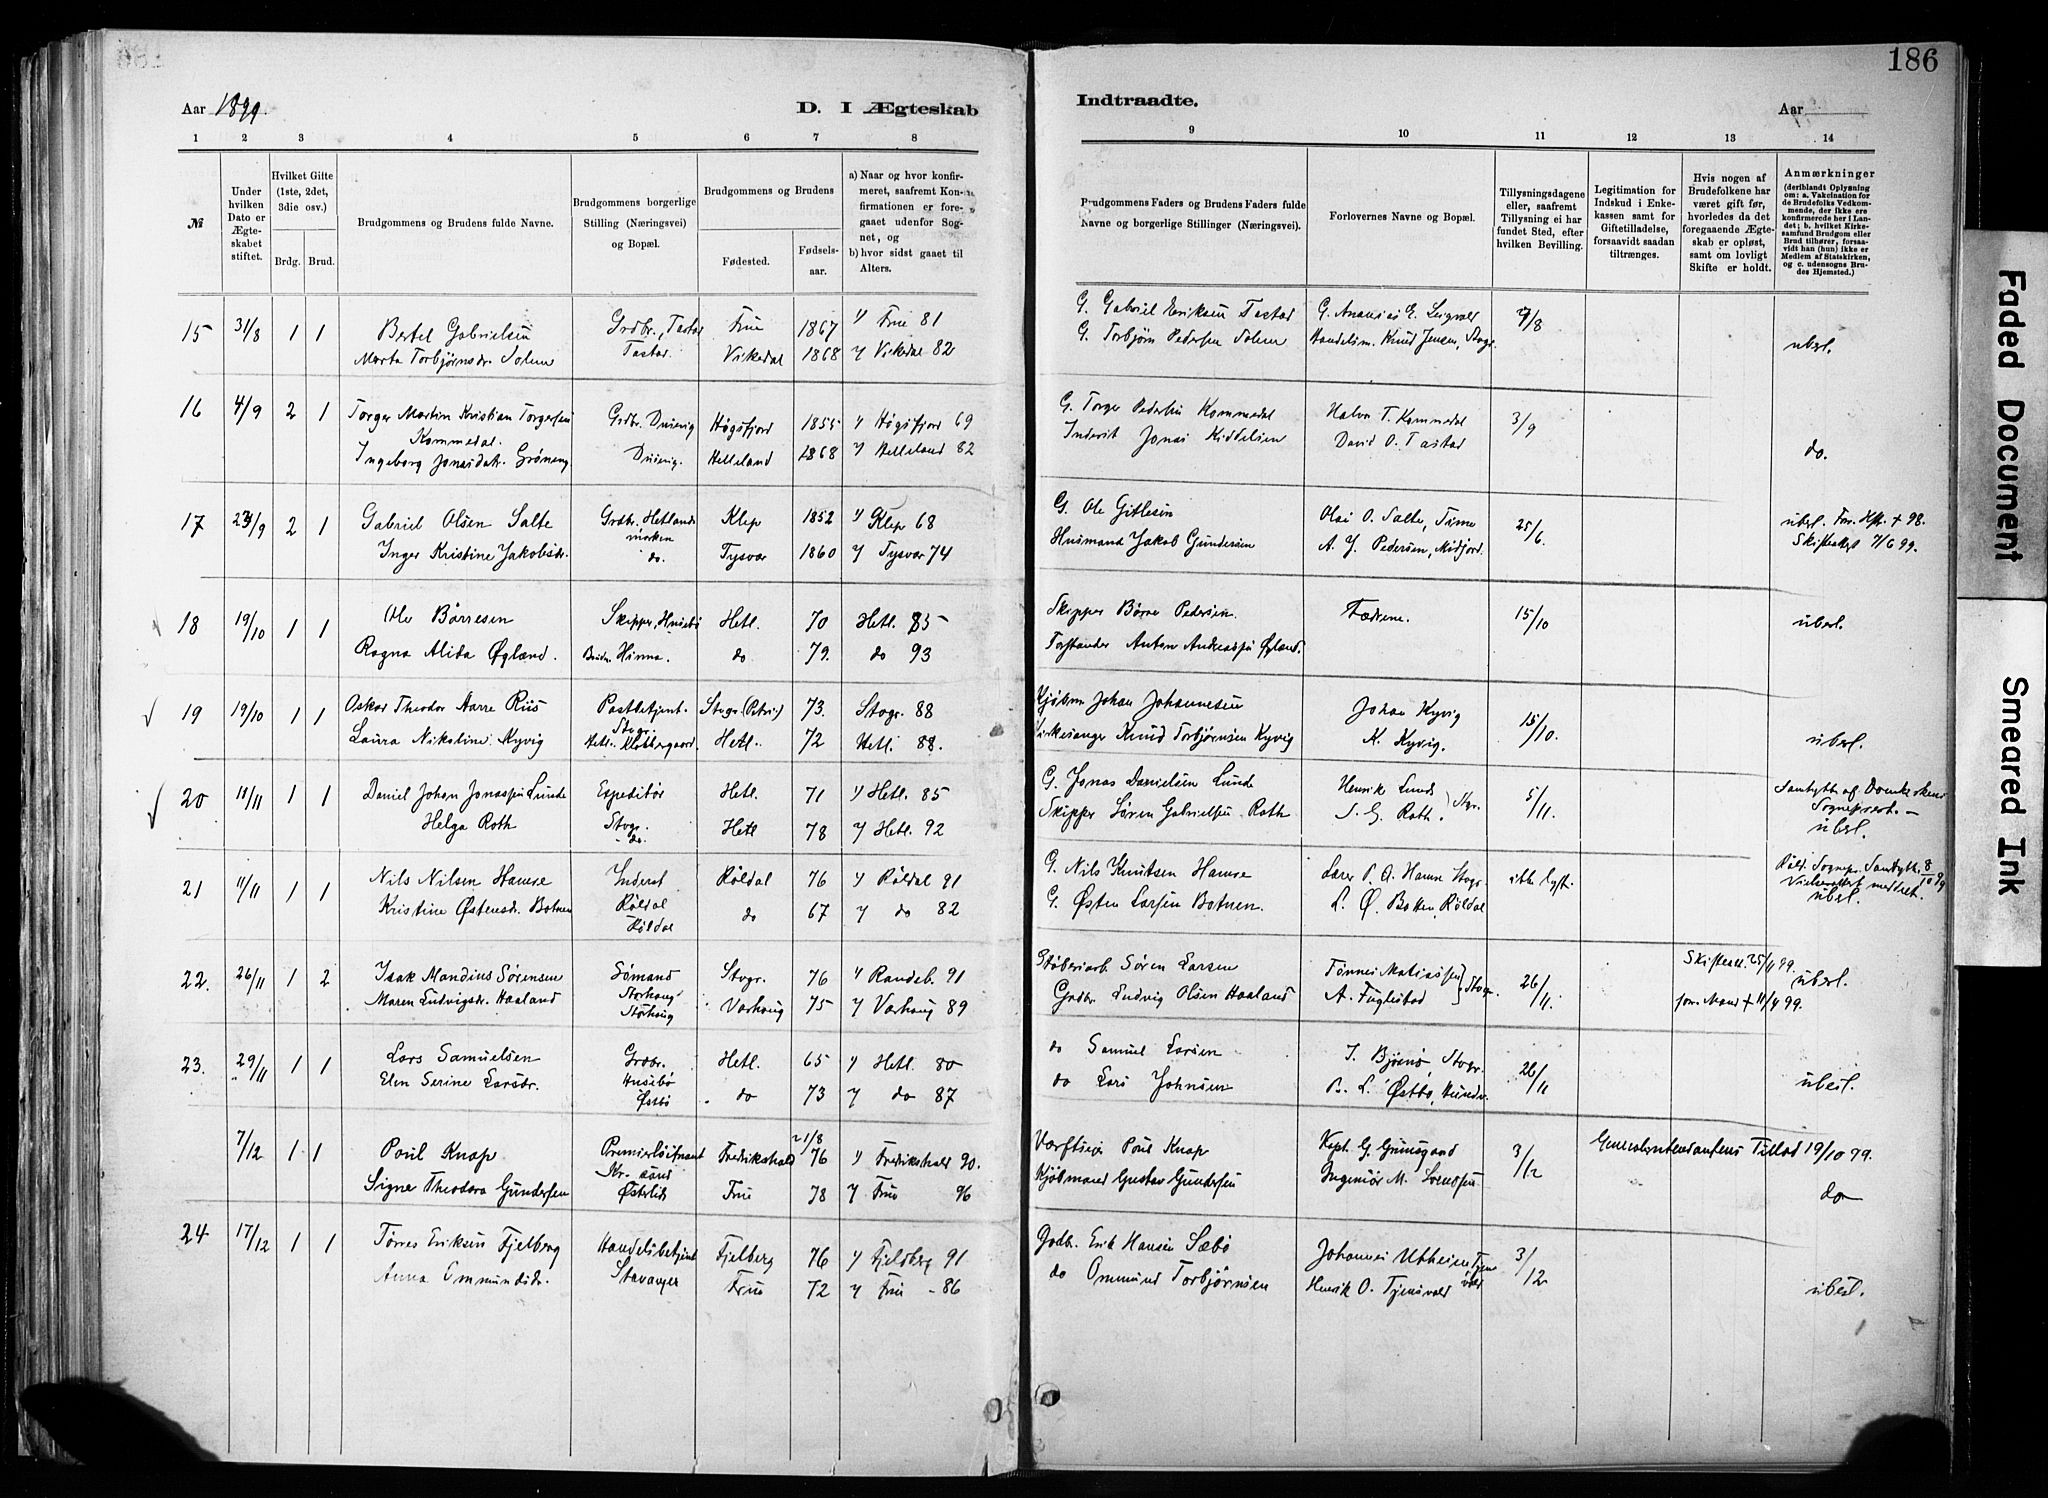 186
Aar 1899.
D. I Ægteskab
Indtraadte.
Aar
1 2 3 4 5 6 7 8
9 10 11 12 13 14
№
Under hvilken Dato er Ægteskabet stiftet.
Hvilket Gifte (1ste, 2det, 3die osv.)
Brdg. Brud.
Brudgommens og Brudens fulde Navne.
Brudgommens borgerlige Stilling (Næringsvei) og Bopæl.
Brudgommens og Brudens
Fødested. Fødsels-aar.
a) Naar og hvor konfirmeret, saafremt Konfirmationen er foregaaet udenfor Sognet, og
b) hvor sidst gaaet til Alters.
Brudgommens Faders og Brudens Faders fulde Navne og borgerlige Stillinger (Næringsvei).
Forlovernes Navne og Bopæl.
Tillysningsdagene eller, saafremt Tillysning ei har fundet Sted, efter hvilken Bevilling.
Legitimation for Indskud i Enkekassen samt for Giftetilladelse, forsaavidt saadan tiltrænges.
Hvis nogen af Brudefolkene har været gift før, hvorledes da det foregaaende Ægteskab er opløst, samt om lovligt Skifte er holdt.
Anmærkninger
(deriblandt Oplysning om: a. Vakcination for de Brudefolks Vedkommende, der ikke ere konfirmerede her i Landet; b. hvilket Kirkesamfund Brudgom eller Brud tilhører, forsaavidt han (hun) ikke er Medlem af Statskirken, og c. udensogns Brudes Hjemsted.)
15 31/8 1 1 Bertel Gabrielsen Grdbr. Tastad Frue 1867 Frue 81 G. Gabriel Eriksen Tastad /8
Marta Torbjørnsdr. Solem Tastad. Vikedal 1868 Vikedal 82 G. Torbjørn Pedersen Solem Handelsm. Knud Jensen, Stvgr. ubesl.
16 4/9 2 1 Torger Martin Kristian Torgersen Grdbr. Høgsfjord 1855 Høgsfjord 69 G. Torger Pedersen Kommedal Halvor T. Kommedal 3/9
Kommedal.
Ingeborg Jonasdatr. Helleland 1868 Helleland 82 Inderst Jonas David O. Tastad do.
17 2 1 Gabriel Olsen Salte Grdbr. Hetlandsmarken Klep 1852 Klep 68 G. Ole Gitlesen O. Salte, Time 25/6. ubesl. † 98.
Inger Kristine Jakobsdr. do. Tysvær 1860 Tysvær 74 Husmand Jakob Gundersen A. J. Pedersen, Skifteattest 7/6 99.
18 19/10 1 1 Ole Børresen Skipper, Hetl. 70 Hetl. 85 Skipper Børre Pedersen. Fædrene. 15/10 ubesl.
Ragna Alida Øgland. Hinna. do 79. do 93 Anton Andreassen Øgland.
19 19/10 1 1 Oskar Theodor Harre Riis Postbetjent. Stvgr. (Petri) 73. Stvgr. 88 Johan Johannesen Johan Kyvig 15/10. ubesl.
Laura Nikoline Kyvig Stvgr. Hetl. 72 Hetl. 88. Kirkesanger Knud Torbjørnsen Kyvig K. Kyvig.
20 18/11 1 1 Daniel Johan Jonassen Lunde Expeditør Hetl. 71 Hetl. 85 G. Jonas Danielsen Lunde Henrik Lunde Stvgr. 5/11. Samtykke af Domkirkens Sogneprest.
Helga Roth Stvgr. do. Hetl 78 Hetl. 92 Skipper Søren Gabrielsen Roth S. G. Roth. ubesl.
21 11/11 1 1 Nils Nilsen Hamre Inderst Røldal 76 Røldal 91 G. Nils Knutsen Hamre Lærer Hamre Stvgr. ikke lyst. Røld. Sognepr. Samtykke 8/10 99
Kristine Østensdr. Botnen Røldal Røldal do 67 do 82 G. Østen Larsen Botnen. L. Ø. Botten, Røldal ubesl.
22. 26/11 1 2 Isak Mandius Sørensen Sømand Stvgr. 76 Randeb. 91 Støberiarb. Søren Larsen Tønnes Matiassen Stvgr. 26/11. Skifteatt. 25/11 99. ubesl.
Maren Ludvigsdr. Haaland Storhaug Storhaug Varhaug 75 Varhaug 89 Grdbr. Ludvig Olsen Haaland A. Fuglestad forr. Mand † 11/4 99.
23. 29/11 1 1 Lars Samuelsen Grdbr. Hetl. 65 Hetl. 80 do Samuel Larsen Stvgr. 26/11
Elen Serine Larsdr. Husebø Østbø do 73 do 87 do Lars Johnsen B. L. Østbø, ubesl.
7/12 1 1 Poul Knap Premierløitnant Fredrikshald 21/8 76 Fredrikshald 90. Værftseier Poul Knap Kapt. G. 3/12 Generalintendantens Tillad. 19/10 99.
Signe Theodora Gundersen Kr.sand Østerlid Frue 78 Frue 96 Kjøbmand Gustav Gundersen Ingeniør M. Svendsen do
24 17/12 1 1 Tørres Eriksen Fjelberg Handelsbetjent Fjelberg 76 Fjelberg 91 Grdbr. Erik Hansen Sæbø Johannes Utheim 3/12
Anna Ommundsdr. Stavanger Frue 72 Frue 86 do Ommund Torbjørnsen Henrik O. Tjensvold ubesl.
Faded Document
Smeared Ink